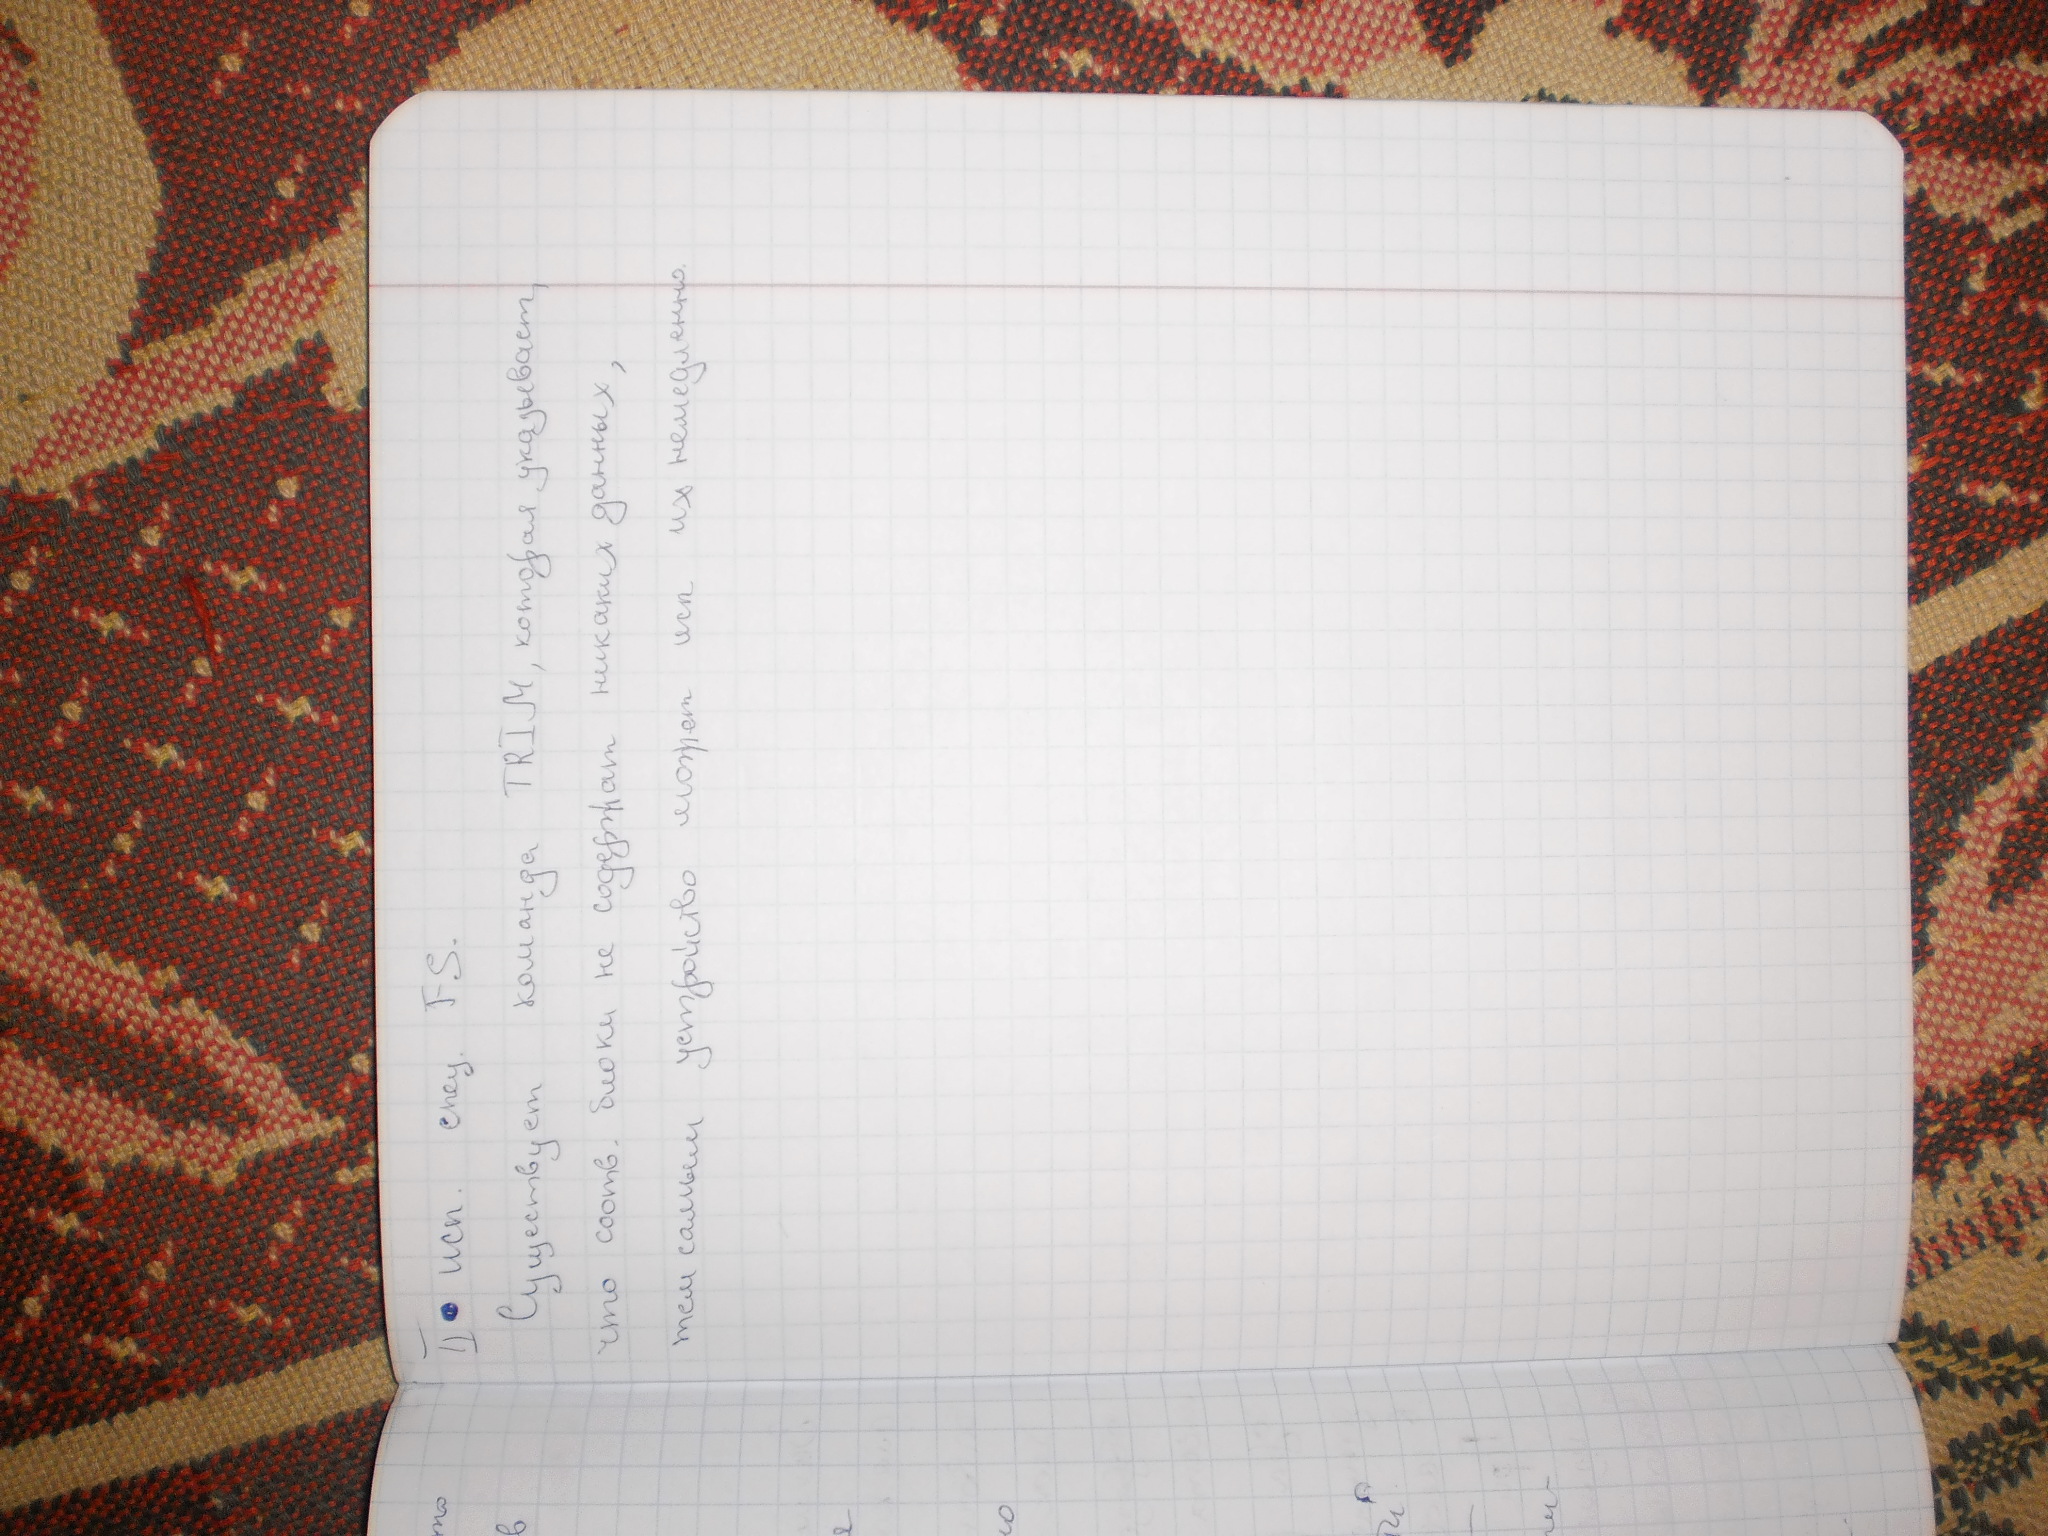 II • исп. спец. FS.
Существует команда TRIM, которая указывает,
что соотв. блоки не содержат никаких данных,
тем самым устройство может исп их немедленно.